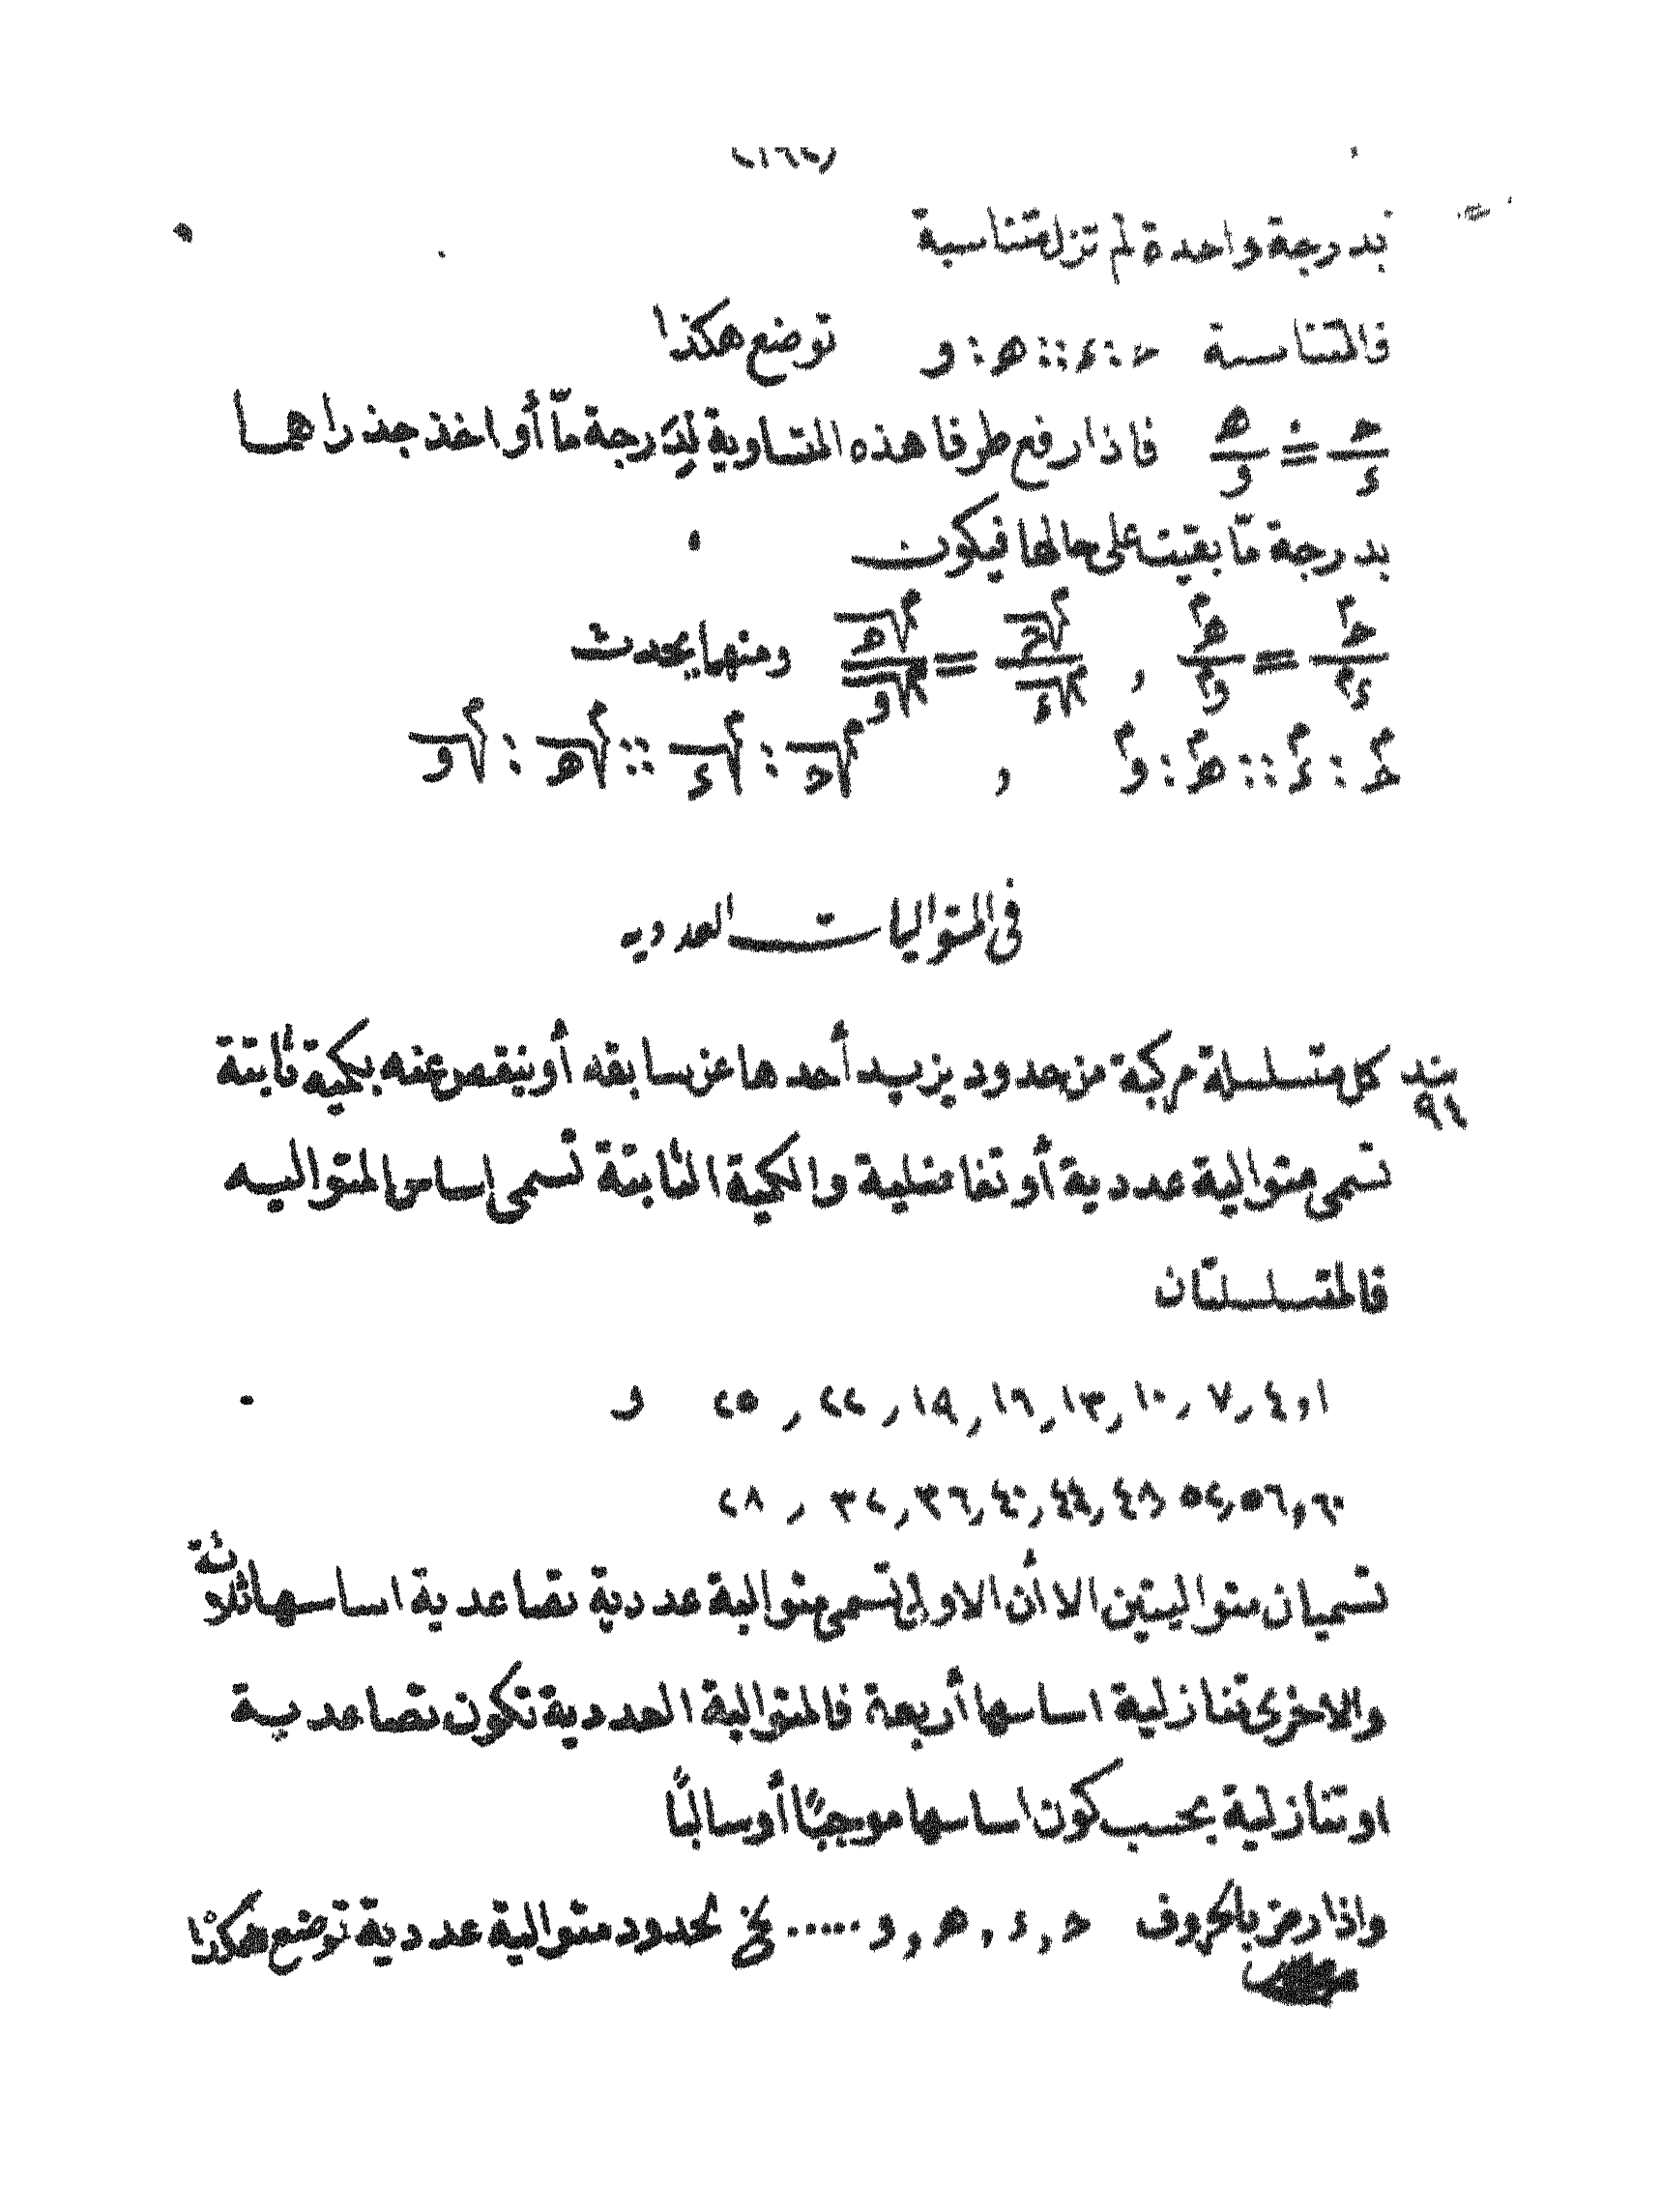 بدرجة واحدة لم تزل متناسبة
فالمتناسبة حـ : ء :: هـ : و توضع هكذا
حـ/ء = هـ/و فاذا رفع طرفا هذه المتساوية لدرجة مّا أو اخذ جذراهما
بدرجة مّا بقيت على حالها فيكون
حـ^م/ء^م = هـ^م/و^م , م√حـ/م√ء = م√هـ/م√و ومنها يحدث
حـ^م : ء^م :: هـ^م : و^م , م√حـ : م√ء :: م√هـ : م√و
فى المتواليات العدديه
بند ٩٤ كل متسلسلة مركبة من حدود يزيد أحدها عن سابقه أو ينقص عنه بكمية ثابتة
تسمى متوالية عددية أو تفاضلية والكمية الثابتة تسمى اساس المتواليه
فالمتسلسلتان
١ , ٤ , ٧ , ١٠ , ١٣ , ١٦ , ١٩ , ٢٢ , ٢٥ و
٦٠ , ٥٦ , ٥٢ , ٤٨ , ٤٤ , ٤٠ , ٣٦ , ٣٢ , ٢٨
تسميان متواليتين الا أن الاولى تسمى متوالية عددية تصاعدية اساسها ثلاثة
والاخرى تنازلية اساسها أربعة فالمتوالية العددية تكون تصاعدية
او تنازلية بحسب كون اساسها موجبًا أو سالبًا
واذا رمز بالحروف حـ , ء , هـ , و ..... الخ لحدود متوالية عددية توضع هكذا